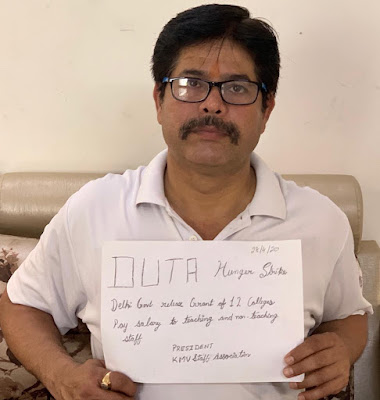 28/6/20
DUTA Hunger Strike
Delhi Govt relise Grant of 12 Colleges
Pay salary to teaching and non-teaching
staff
PRESIDENT
KMV Staff Association